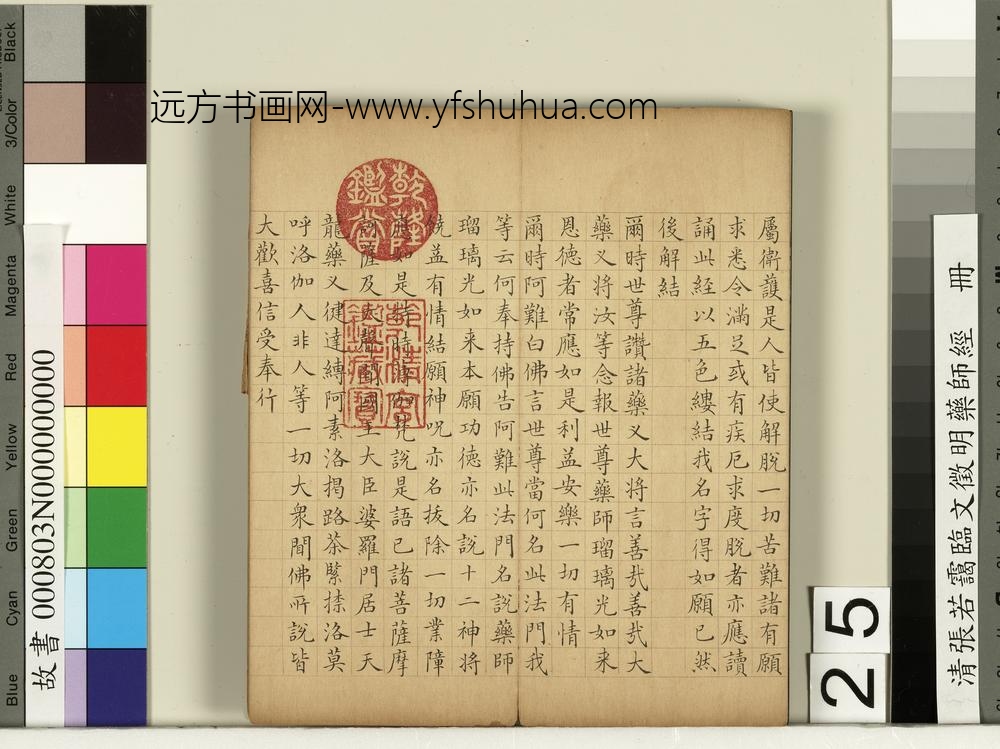 远方书画网-www.yfshuhua.com
屬衛護是人皆使解脫一切苦難諸有願
求悉令滿足或有疾厄求度脫者亦應讀
誦此經以五色縷結我名字得如願已然
後解結
爾時世尊讚諸藥义大將言善哉善哉大
藥义將汝等念報世尊藥師瑠璃光如来
恩德者常應如是利益安樂一切有情
爾時阿難白佛言世尊當何名此法門我
等云何奉持佛告阿難此法門名說藥師
瑠璃光如来本願功德亦名說十二神將
饒益有情結願神呪亦名拔除一切業障
應如是持時薄伽梵說是語已諸菩薩摩
訶薩及大聲聞國王大臣婆羅門居士天
龍藥义健達縛阿素洛揭路荼緊捺洛莫
呼洛伽人非人等一切大衆聞佛所說皆
大歡喜信受奉行
乾隆
鑑賞
乾清宮
鑑藏寶
清張若靄臨文徵明藥師經 冊
故書 000803N000000000
25
Blue
Cyan
Green
Yellow
Red
Magenta
White
3/Color
Black